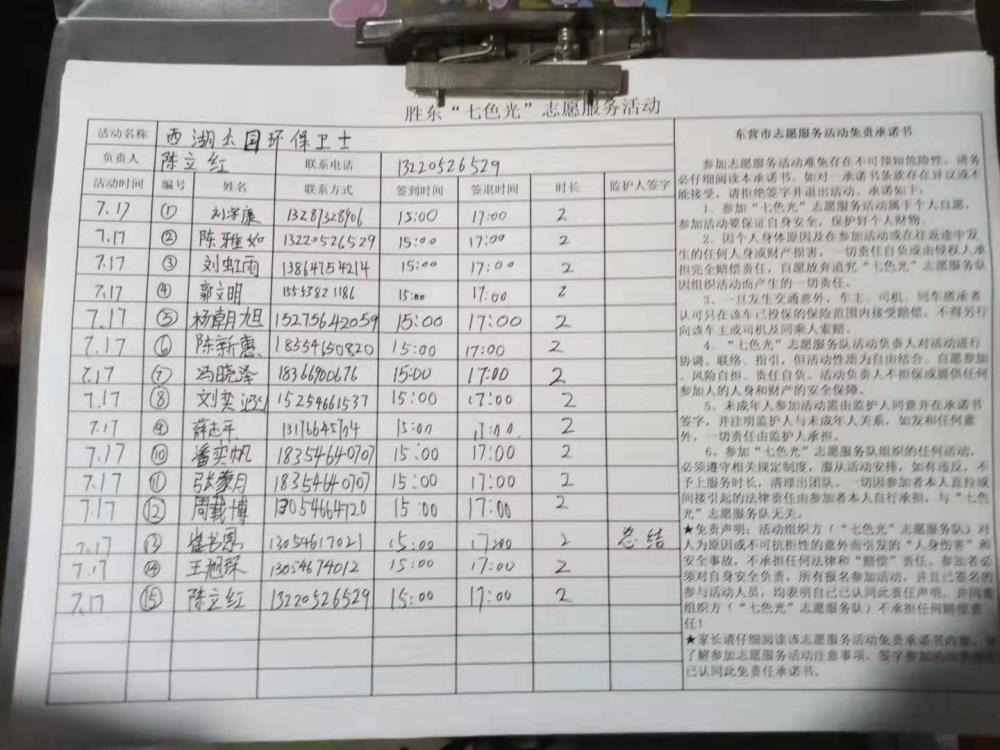 胜东“七色光”志愿服务活动
活动名称 西湖公园环保卫士
负责人 陈立红 联系电话 13220526529
活动时间 编号 姓名 联系方式 签到时间 签退时间 时长 监护人签字
7.17 ① 13287328906 15:00 17:00 2
7.17 ② 陈雅如 13220526529 15:00 17:00 2
7.17 ③ 刘虹雨 13864754214 15:00 17:00 2
7.17 ④ 郭文明 15:00 17:00 2
7.17 ⑤ 杨朝旭 15275642059 15:00 17:00 2
7.17 ⑥ 陈新惠 18354650820 15:00 17:00 2
7.17 ⑦ 冯晓泽 18366900676 15:00 17:00 2
7.17 ⑧ 刘奕 15254661537 15:00 17:00 2
7.17 ⑨ 15:00 17:00 2
7.17 ⑩ 潘奕帆 18354640707 15:00 17:00 2
7.17 ⑪ 张蒙月 18354640707 15:00 17:00 2
7.17 ⑫ 周载博 13054664720 15:00 17:00 2
7.17 ⑬ 崔书恩 13054617021 15:00 17:00 2 总结
7.17 ⑭ 王旭 13054674012 15:00 17:00 2
7.17 ⑮ 陈立红 13220526529 15:00 17:00 2
东营市志愿服务活动免责承诺书
参加志愿服务活动难免存在不可预知危险性，请务
必仔细阅读本承诺书。如对一承诺书条款存在异议或不
能接受，请拒绝签字并退出活动。承诺如下：
1、参加“七色光”志愿服务活动属于个人自愿，
参加活动要保证自身安全，保护好个人财物。
2、因个人身体原因及在参加活动或在往返途中发
生的任何人身或财产损害，一切责任自负或由侵权人承
担完全赔偿责任，自愿放弃追究“七色光”志愿服务队
因组织活动而产生的一切责任。
3、一旦发生交通意外，车主、司机、同车搭乘者
认可只在该车已投保的保险范围内接受赔偿，不得另行
向该车主或司机及同乘人索赔。
4、“七色光”志愿服务队活动负责人对活动进行
协调、联络、指引，但活动性质为自由结合、自愿参加
、风险自担、责任自负。活动负责人不担保或提供任何
参加人的人身和财产的安全保障。
5、未成年人参加活动需由监护人同意并在承诺书
签字，并注明监护人与未成年人关系，如发和任何意
外，一切责任由监护人承担。
6、参加“七色光”志愿服务队组织的任何活动，
必须遵守相关规定制度，服从活动安排，如有违反，不
予上服务时长，清理出团队。一切因参加者本人直接或
间接引起的法律责任由参加者本人自行承担，与“七色
光”志愿服务队无关。
★免责声明：活动组织方（“七色光”志愿服务队）对
人为原因或不可抗拒性的意外而引发的“人身伤害”和
安全事故，不承担任何法律和“赔偿”责任。参加者必
须对自身安全负责，所有报名参加活动，并且已签名的
参与活动人员，均表明自己已认同此责任声明，并同意
组织方（“七色光”志愿服务队）不承担任何赔偿责
任！
★家长请仔细阅读该志愿服务活动免责承诺书内容，
了解参加志愿服务活动注意事项，签字参加
已认同此免责任承诺书。